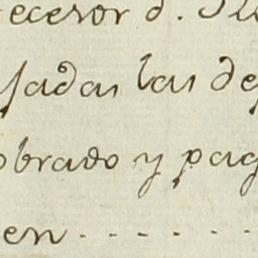 ecesor d.
sadas las de
obrado y pag
en